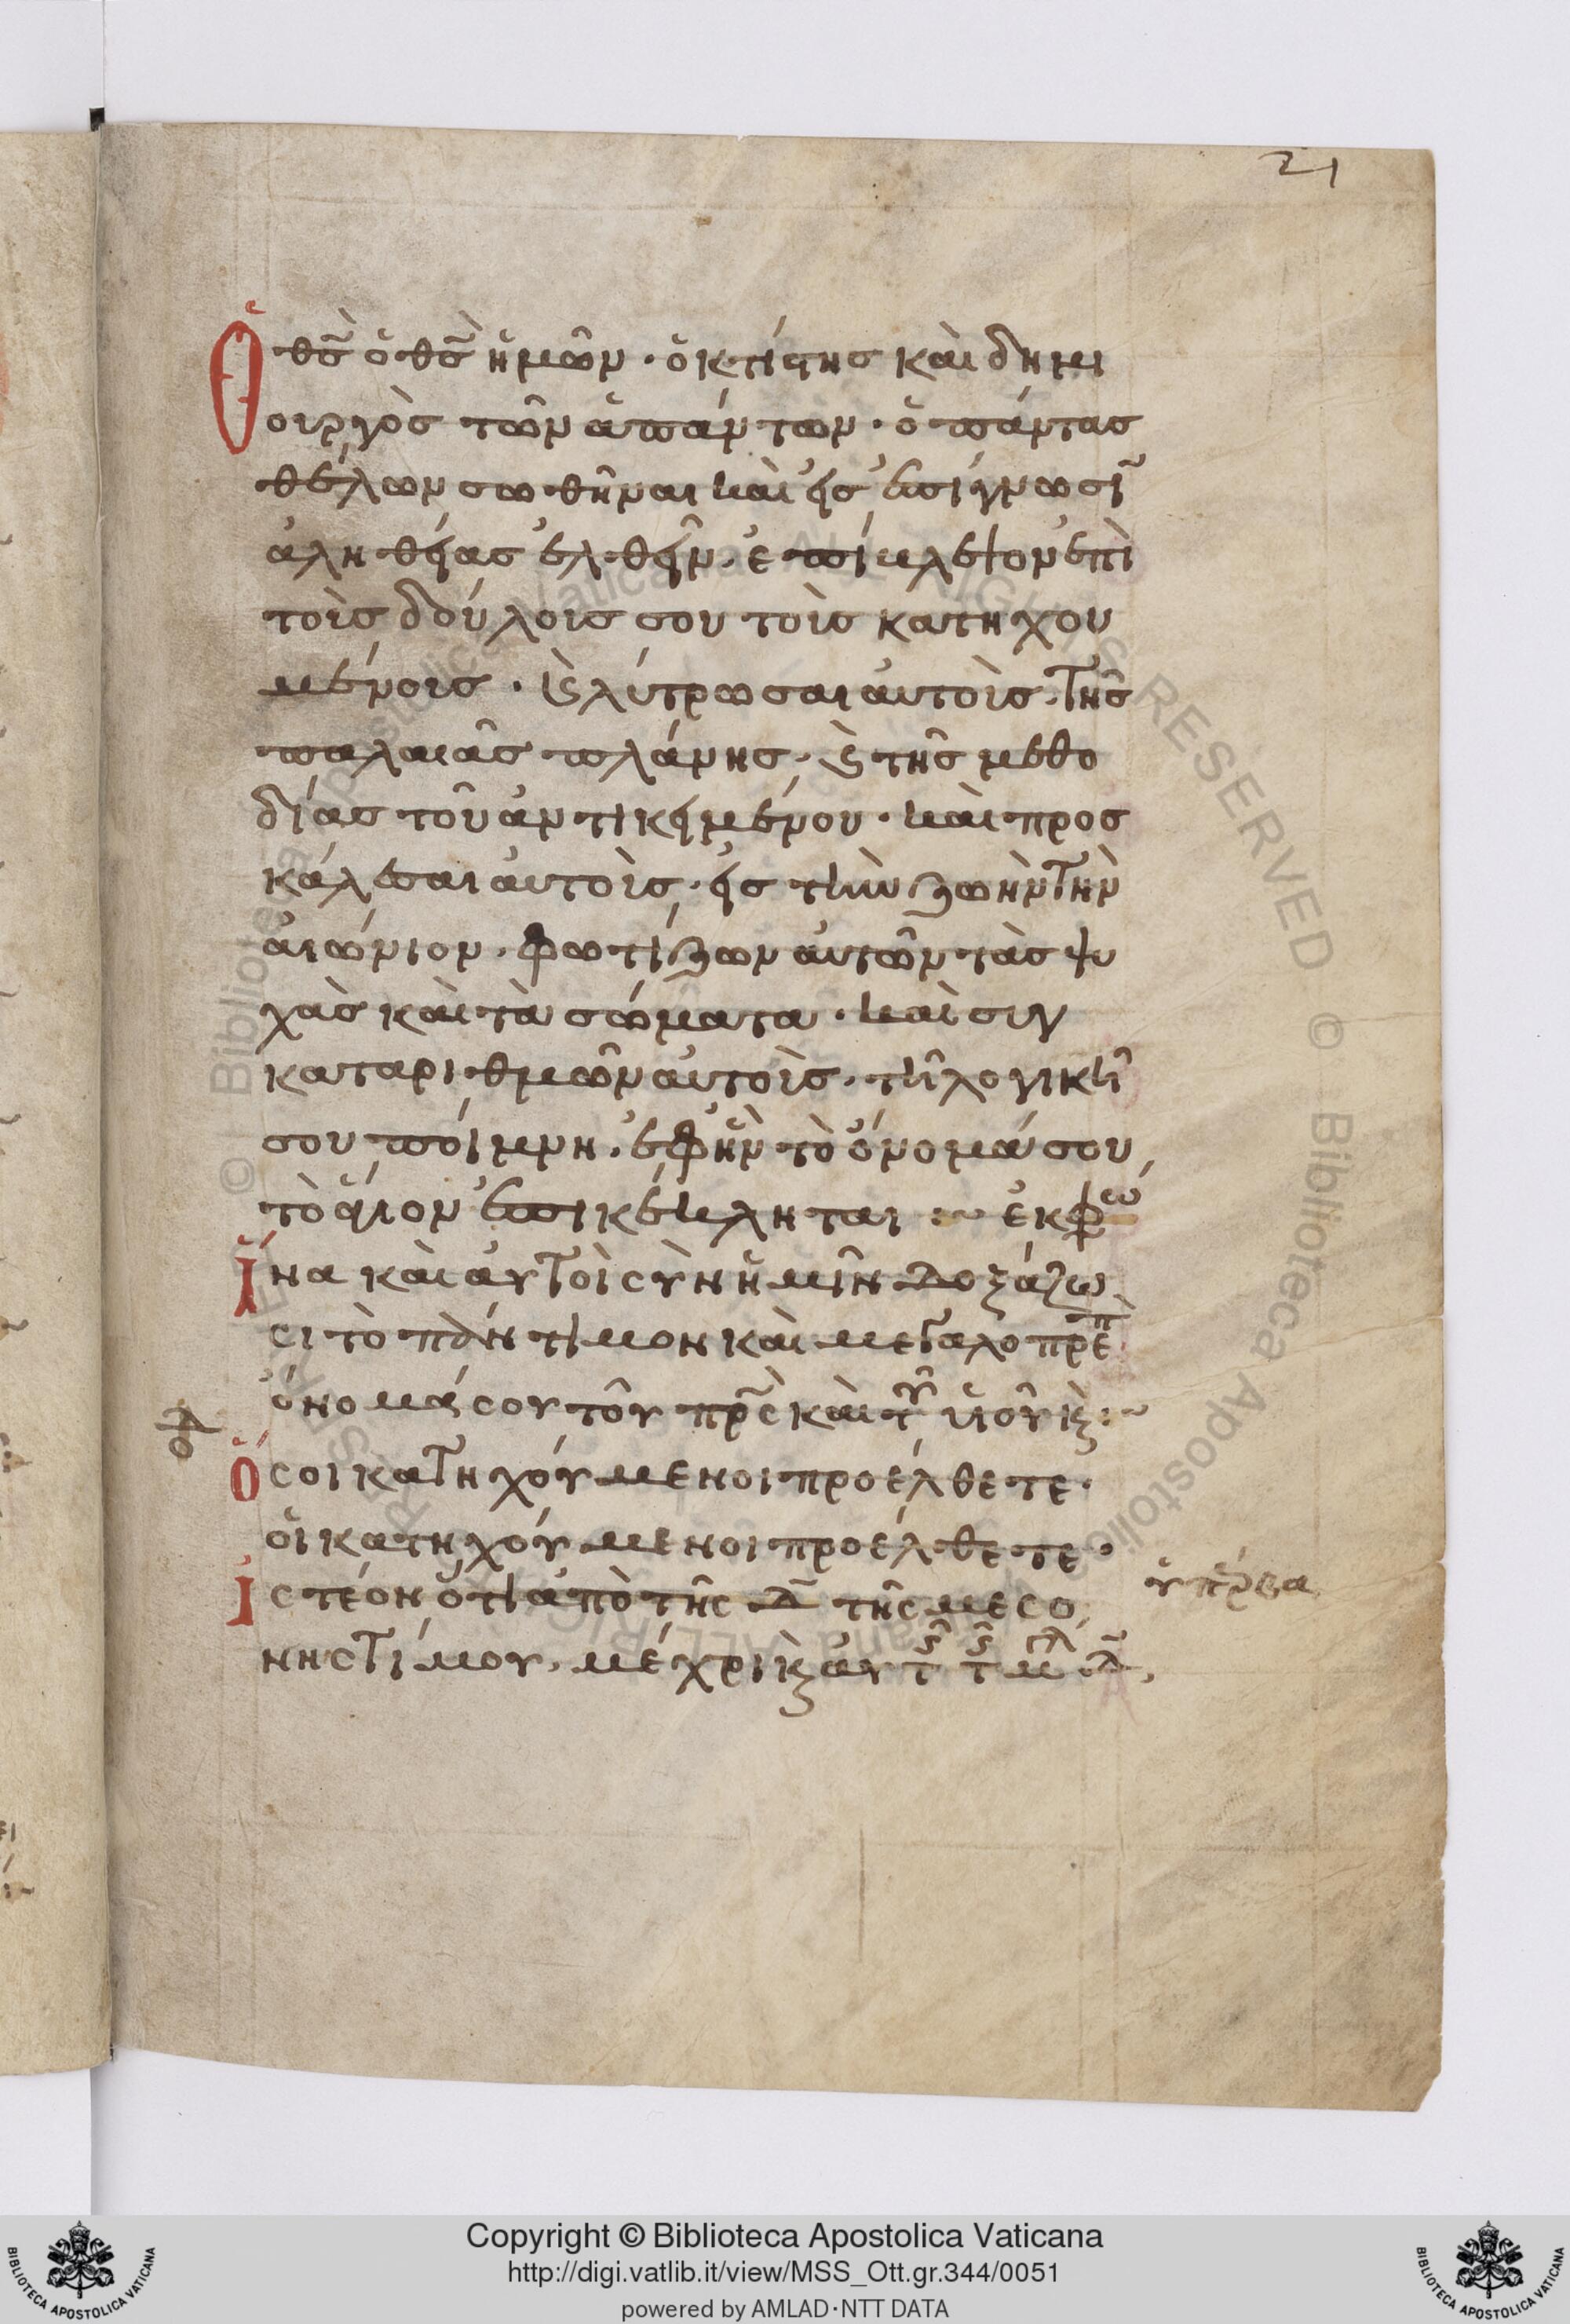 21
Ὁ θς̅ ὁ θς̅ ἡμῶν · ὁ κτίστης καὶ δημι
ουργὸς τῶν ἁπάντων · ὁ πάντας
θέλων σωθῆναι καὶ εἰς ἐπίγνωσῑ
ἀληθείας ἐλθεῖν · ἐπίβλεψον ἐπὶ
τοῖς δούλοις σου τοῖς κατηχου
μένοις · καὶ λύτρωσαι αὐτοῖς τῆς
παλαιᾶς πλάνης · καὶ τῆς μεθο
δίας τοῦ ἀντικειμένου · καὶ προσ
κάλεσαι αὐτοῖς · εἰς τὴν ζωὴν τὴν
αἰώνιον · φωτίζων αὐτῶν τὰς ψυ
χὰς καὶ τὰ σώματα · καὶ συγ
καταριθμῶν αὐτοῖς · τῇ λογικῇ
σου ποίμνη · ἐφ' ἣν τὸ ὄνομά σου
τὸ ἅγιον ἐπικέκληται :~ ἐκφω
Ἵνα καὶ αὐτοὶ σὺν ἡμῖν δοξάζω
σι τὸ πάντιμον καὶ μεγαλοπρεπ
ὄνομά σου τοῦ πρ̅ς καὶ τοῦ υἱοῦ κ :~
Ὅσοι κατηχούμενοι προέλθετε ·
οἱ κατηχούμενοι προέλθετε ·
Ἰστέον ὅτι ἀπὸ τῆς δ̅ τῆς μεσο
νηστίμου · μέχρι κ αὐτ τ μ δ̅
Copyright © Biblioteca Apostolica Vaticana
http://digi.vatlib.it/view/MSS_Ott.gr.344/0051
powered by AMLAD·NTT DATA